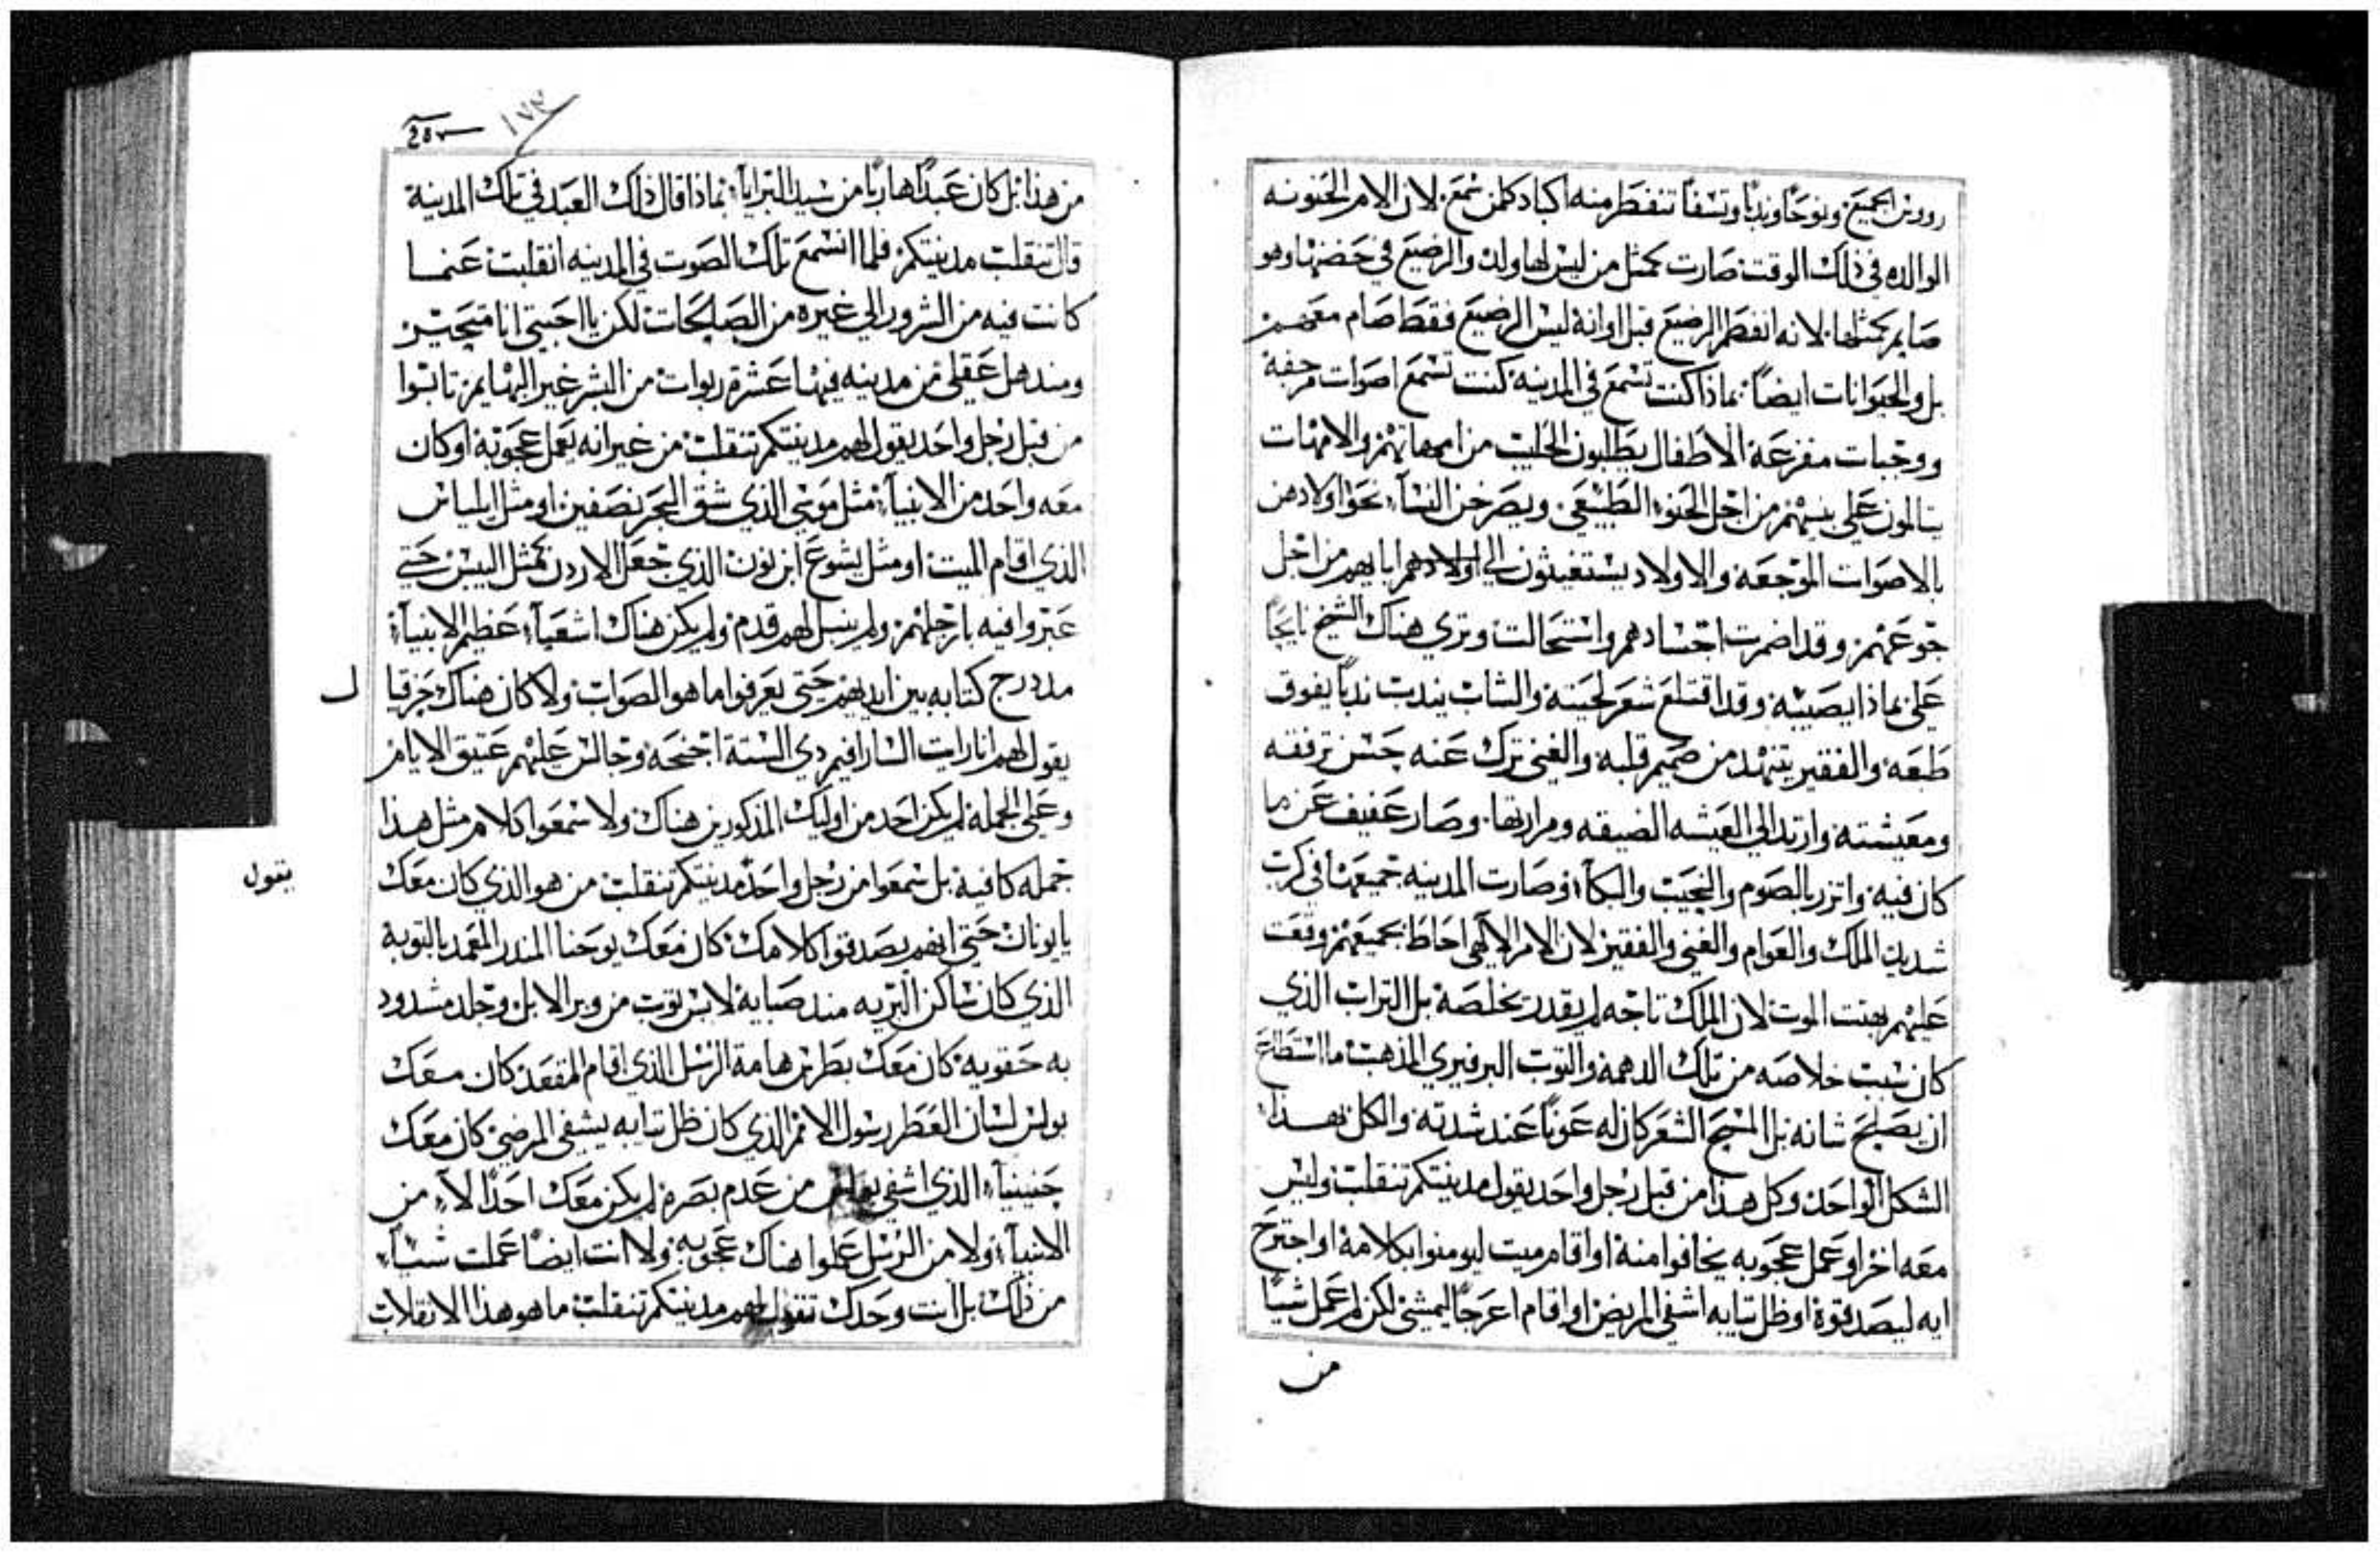 رووس الجميع ونوحًا وندبًا وتسفًا تنفطر منه اكباد كلمن سمع لان الام الحنونه
الوالده في ذلك الوقت صارت كمثل من ليس لها ولد والرضيع في حضنها وهو
صايم كمثلها لانه انفطم الرضيع قبل اوانه ليس الرضيع فقط صام معهم
بل والحيوانات ايضًا بماذا كنت تسمع في المدينه كنت تسمع اصوات مرجفة
ووجبات مفزعة الاطفال يطلبون الحليب من امهاتهم والامهات
يتالمون على بنيهم من اجل الحنو الطبيعي ويصرخن النسآء نحو اولادهن
بالاصوات الموجعة والاولاد يستغيثون الي اولادهم ابايهم من اجل
جوعهم وقد اضمرت اجسادهم واستحالت وتري هناك الشيخ نايحًا
على ماذا يصيبه وقد اقتلع شعر لحيته والشاب يندب ندبًا يفوق
طبعه والفقير يتنهد من صميم قلبه والغني ترك عنه حسن ترفقه
ومعيشته وارتد الي العيشه الضيقه ومرارتها وصار عفيف عن ما
كان فيه واتزر بالصوم والنحيب والبكآء وصارت المدينه جميعها في كرب
شديد الملك والعوام والغني والفقير لان الامر الالهي احاط بجميعهم وقعت
عليهم بهتت الموت لان الملك تاجه لم يقدر يخلصه بل التراب الذي
كان سبب خلاصه من تلك الدهمة والتوب البرفيري المذهب ما استطاع
ان يصلح شانه بل المسح الشعر كان له عونًا عند شدته والكل بهـذا
الشكل الواحد وكل هـذا من قبل رجل واحد يقول مدينتكم تنقلب وليس
معه اخر او عمل عجوبه يخافوا منه او اقام ميت ليومنوا بكلامه او اجترح
ايه ليصدقوة او ظل تيابه اشفي المريض او اقام اعرجًا ليمشي لكن لم عمل شيًا
من
من هذا بل كان عبدًا هاربًا من سيد البرايآ بماذا قال ذلك العبد في تلك المدينة
قال تنقلب مدينتكم فلما انسمع تلك الصوت في المدينه انقلبت عنمـا
كانت فيه من الشرور الي غيره من الصالحات لكن يا احبتي انا متحيـر
ومندهل عقلي من مدينه فيها عشرة ربوات من البشر غير البهايم تابـوا
من قبل رجل واحد يقول لهم مدينتكم تنقلب من غير انه يعمل عجوبه او كان
معه واحد من الانبيآء مثل موسي الذي شق البحر نصفين او مثل ايلياس
الذي اقام الميت او مثل يشوع ابن نون الذي جعل الاردن كمثل اليبس حتي
عبروا فيه بارجلهم ولم ينبل لهم قدم ولم يكن هناك اشعيآء عظيم الانبيآء
مددرج كتابه بين ايديهم حتى يعرفوا ما هو الصوات ولا كان هناك حزقيا
ل
يقول لهم انا رايت الشارافيم دي الستة اجنحة وجالس عليهم عتيق الايام
وعلى الجمله لم يكن احد من اوليك المذكورين هناك ولا سمعوا كلام مثل هـذا
جمله كافية بل سمعوا من رجل واحد مدينتكم تنقلب من هو الذي كان معك
يقول
يايونان حتى انهم يصدقوا كلامك كان معك يوحنا المندر المعمد بالتوبة
الذي كان ساكن البريه مند صبايه لابس توب من وبر الابل وجلد مشدود
به حقويه كان معك بطرس هامة الرسل الذي اقام المقعد كان معك
بولس لسان العطر رسول الامم الذي كان ظل تيابه يشفي المرضي كان معك
حنينيآء الذي اشفي بولس من عدم بصره لم يكن معك احدًا الآء من
الانبيآء ولا من الرسل عملوا هناك عجوبه ولا انت ايضًا عملت شيـآء
من ذلك بل انت وحدك تقول لهم مدينتكم تنقلب ما هو هذا الانقلاب